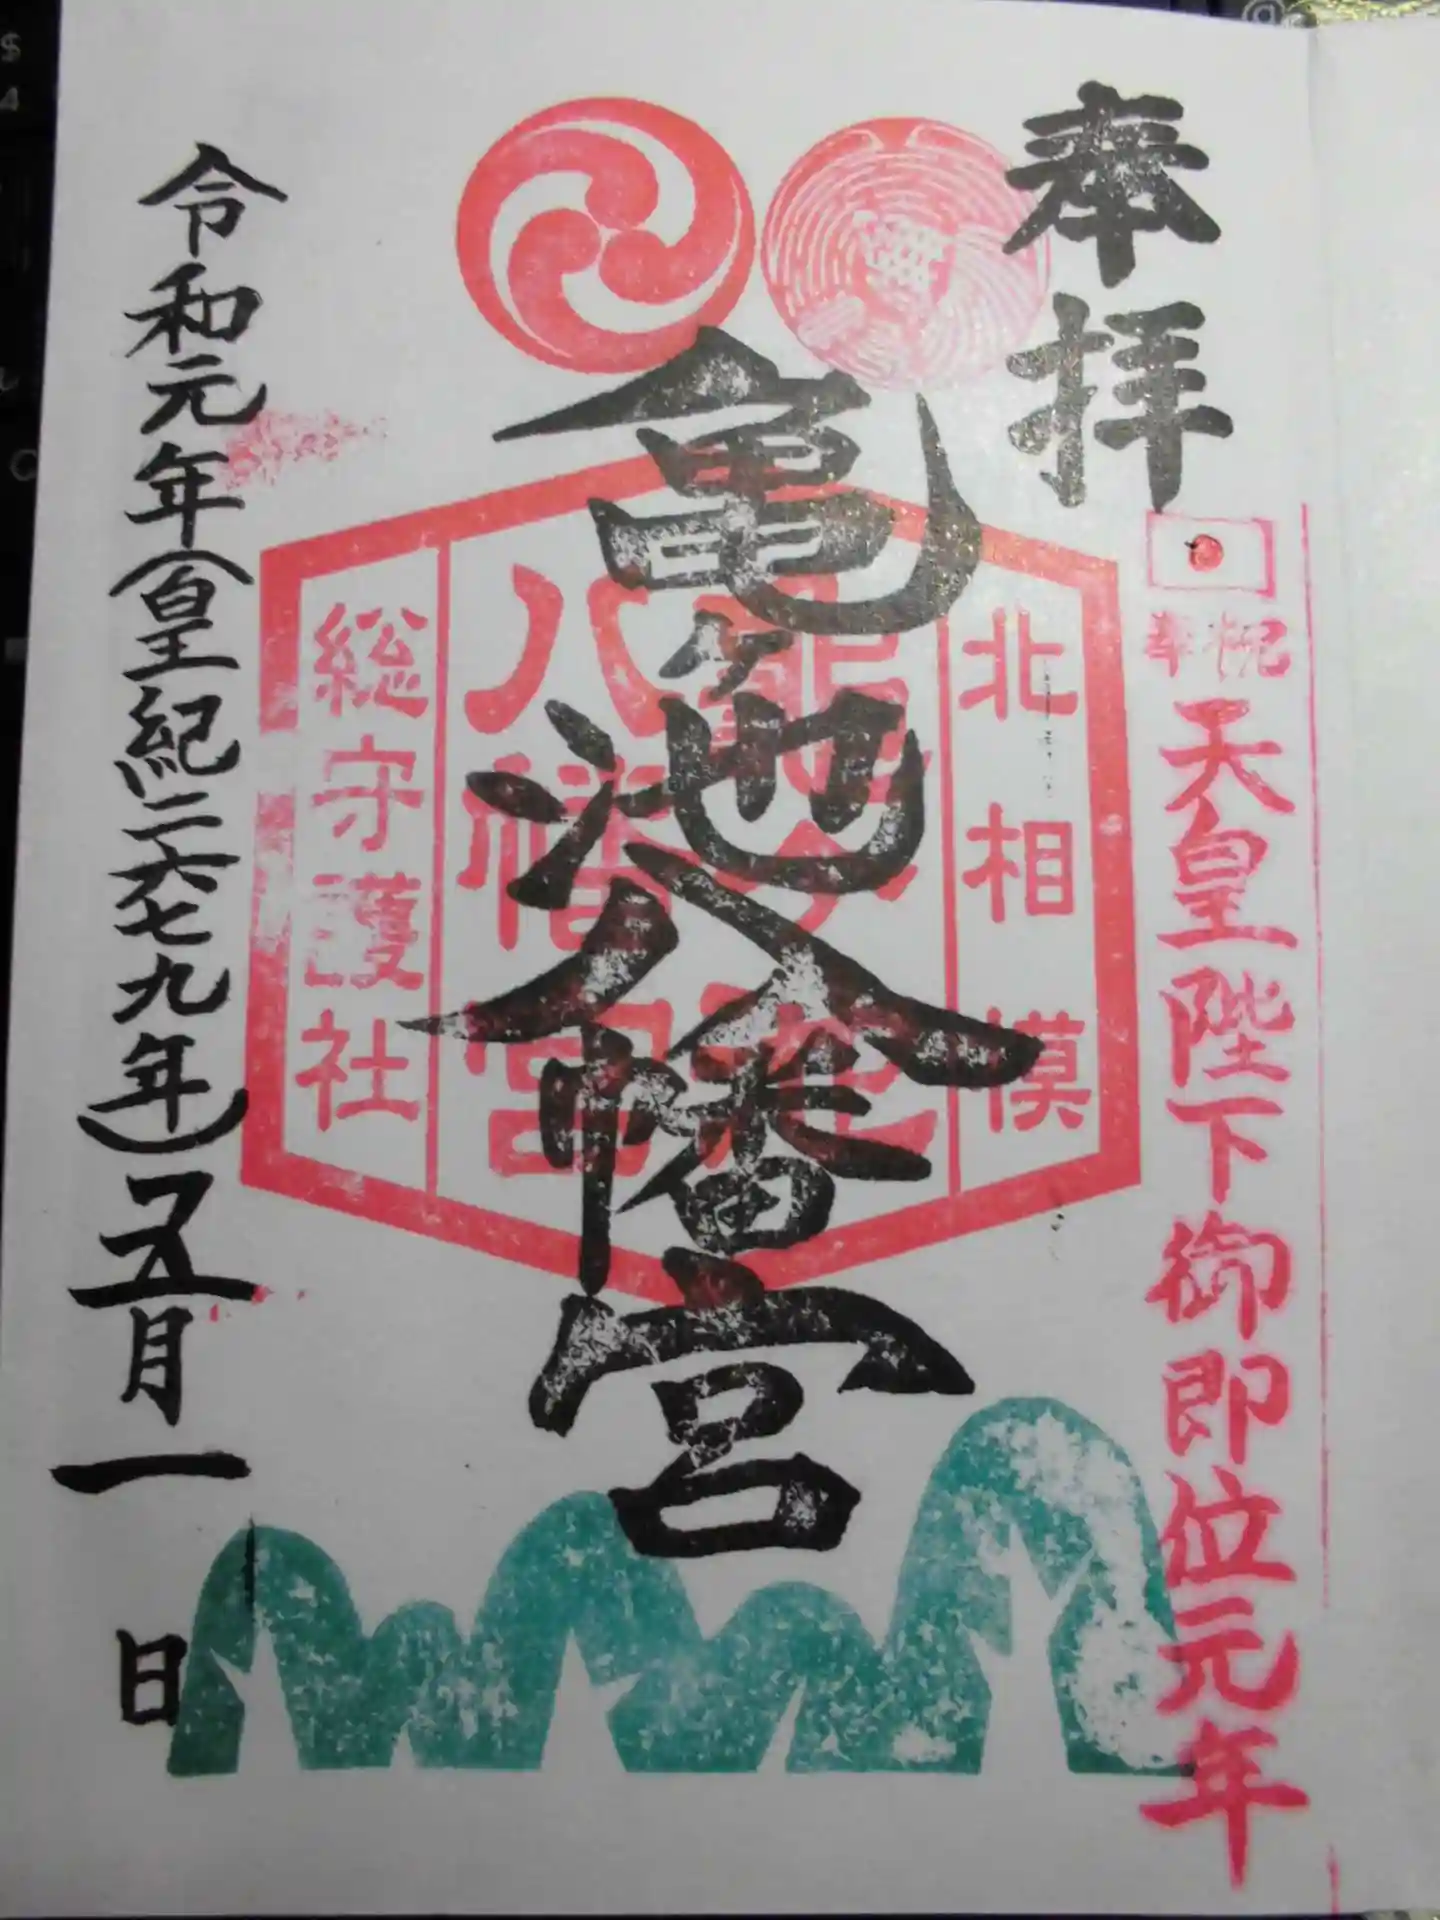 奉拝
奉祝
天皇陛下御即位元年
亀ヶ池八幡宮
北相模
亀ヶ池
八幡宮
総守護社
令和元年(皇紀二六七九年)五月一日